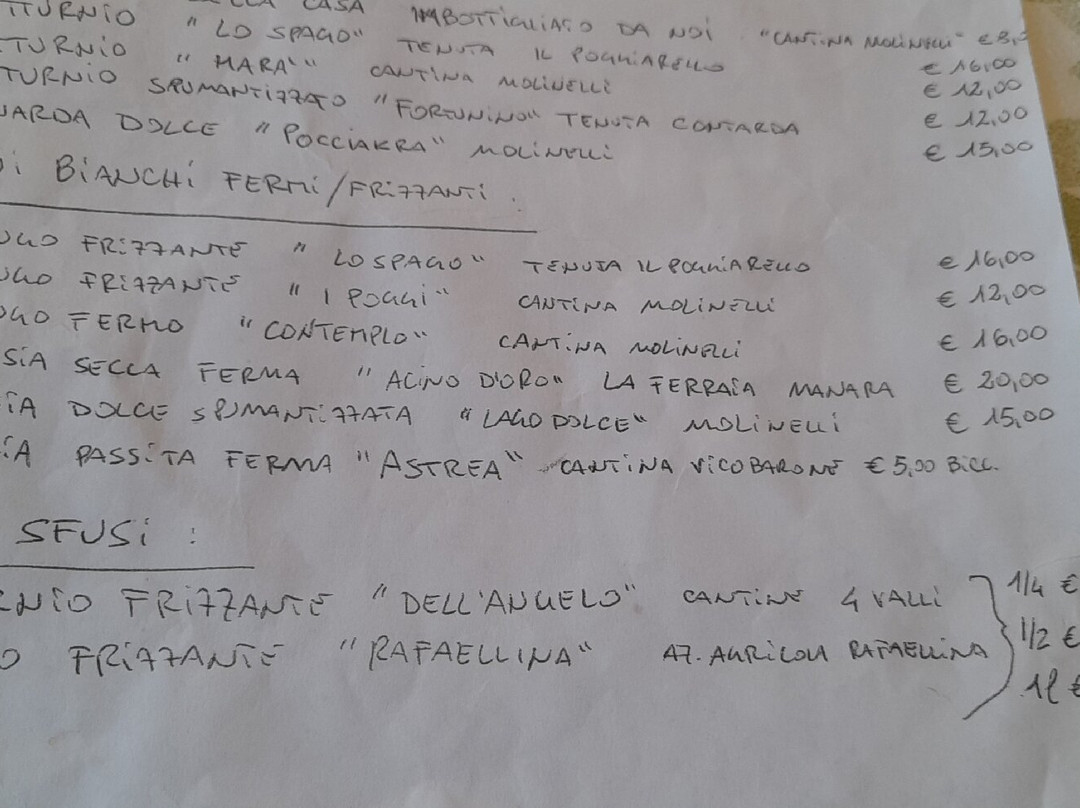 TTURNIO LLA CASA IMBOTTIGLIATO DA NOI "CANTINA MOLINELLI" € 8,0
TTURNIO "LO SPAGO" TENUTA IL POGGIARELLO € 16,00
TURNIO "MARA'" CANTINA MOLINELLI € 12,00
TURNIO SPUMANTIZZATO "FORTUNINO" TENUTA CONTARDA € 12,00
UARDA DOLCE "POCCIAKRA" MOLINELLI € 15,00
I BIANCHI FERMI/FRIZZANTI :
UGO FRIZZANTE "LO SPAGO" TENUTA IL POGGIARELLO € 16,00
UGO FRIZZANTE "I POGGI" CANTINA MOLINELLI € 12,00
UGO FERMO "CONTEMPLO" CANTINA MOLINELLI € 16,00
SIA SECCA FERMA "ACINO D'ORO" LA FERRAIA MANARA € 20,00
IA DOLCE SPUMANTIZZATA "LAGO DOLCE" MOLINELLI € 15,00
IA PASSITA FERMA "ASTREA" CANTINA VICOBARONE € 5,00 BICC.
SFUSI :
RNIO FRIZZANTE "DELL'ANGELO" CANTINE 4 VALLI 1/4 €
O FRIZZANTE "RAFAELLINA" AZ. AGRICOLA RAFAELLINA 1/2 €
1l €